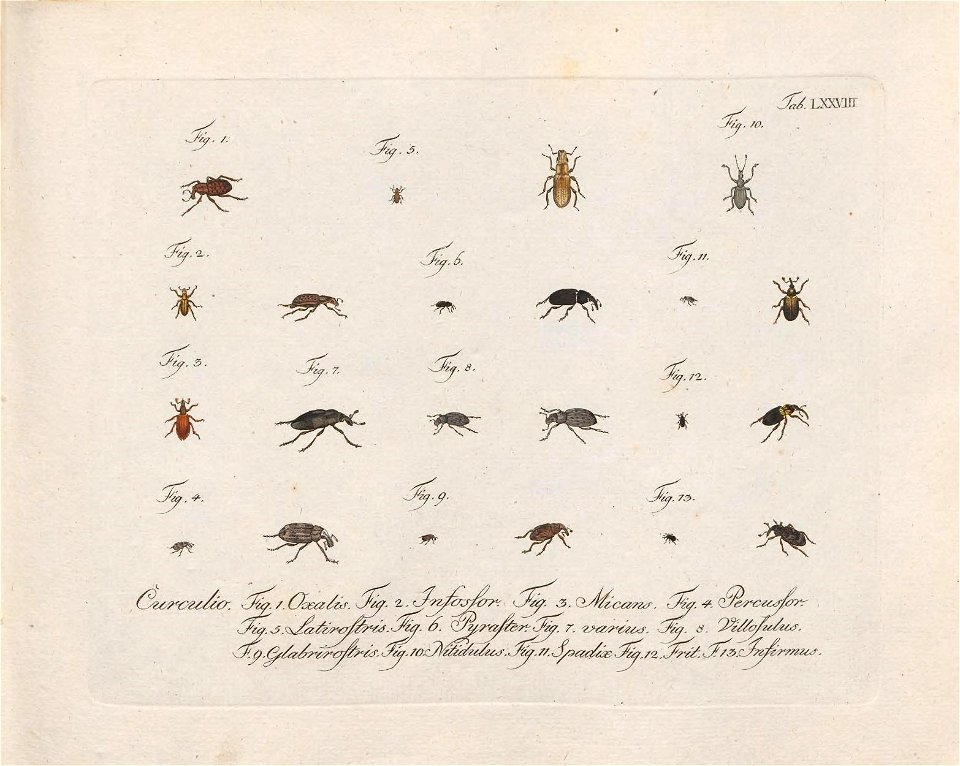 Tab. LXXVIII
Fig. 1.
Fig. 5.
Fig. 10.
Fig. 2.
Fig. 6.
Fig. 11.
Fig. 3.
Fig. 7.
Fig. 8.
Fig. 12.
Fig. 4.
Fig. 9.
Fig. 13.
Curculio. Fig. 1. Oxalis. Fig. 2. Infosſor. Fig. 3. Micans. Fig. 4. Percusſor.
Fig. 5. Latiroſtris. Fig. 6. Pyraſter. Fig. 7. varius. Fig. 8. Villoſulus.
F. 9. Glabriroſtris. Fig. 10. Nitidulus. Fig. 11. Spadix. Fig. 12. Frit. F. 13. Infirmus.